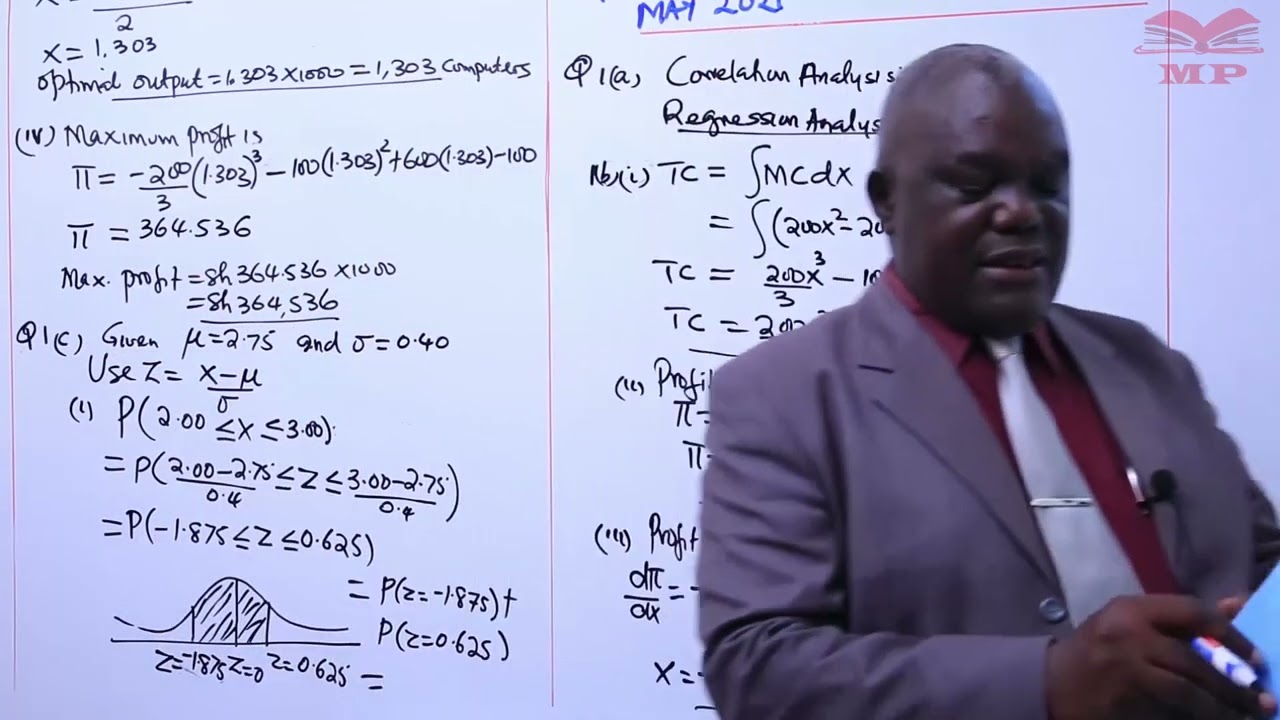 2
x = 1.303
optimal output = 1.303 x 1000 = 1,303 computers
(iv) Maximum profit is
π = -200/3 (1.303)³ - 100(1.303)² + 600(1.303) - 100
π = 364.536
Max. profit = sh 364.536 x 1000
= sh 364,536
Q1(c) Given μ = 2.75 and σ = 0.40
Use Z = x-μ/σ
(i) P(2.00 ≤ x ≤ 3.00)
= P(2.00-2.75/0.4 ≤ Z ≤ 3.00-2.75/0.4)
= P(-1.875 ≤ Z ≤ 0.625)
= P(z=-1.875) +
P(z=0.625)
Z=-1.875 Z=0 Z=0.625 =
MAY 2021
Q1(a) Correlation Analysis
Regression Analysis
(i) TC = ∫MCdx
= ∫(200x² - 20
TC = 200x³/3 - 10
TC =
(ii) Profit
π =
π
(iii) Profit
dπ/dx = -
x = -
MP